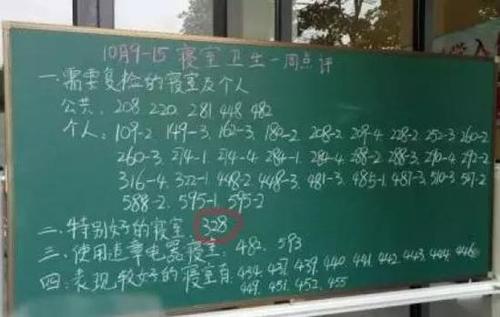 10月9-15 寝室卫生一周点评
一.需要复检的寝室及个人
公共: 208 220. 281 448 482
个人: 109-2. 149-3. 162-3. 180-2. 208-2. 209-4. 228-2. 252-3. 260-2
260-3. 274-1. 274-4. 284-1. 284-4. 288-2. 288-3. 290-4. 292-2
316-4. 322-1. 448-2. 448-3. 481-3. 485-1. 487-3. 510-3. 517-2
588-2. 595-1. 595-2
二.特别好的寝室. 328
三.使用违章电器寝室: 482. 593
四:表现较好的寝室有. 434. 437. 439. 440. 441. 442. 443. 444. 446
449. 451. 452. 455